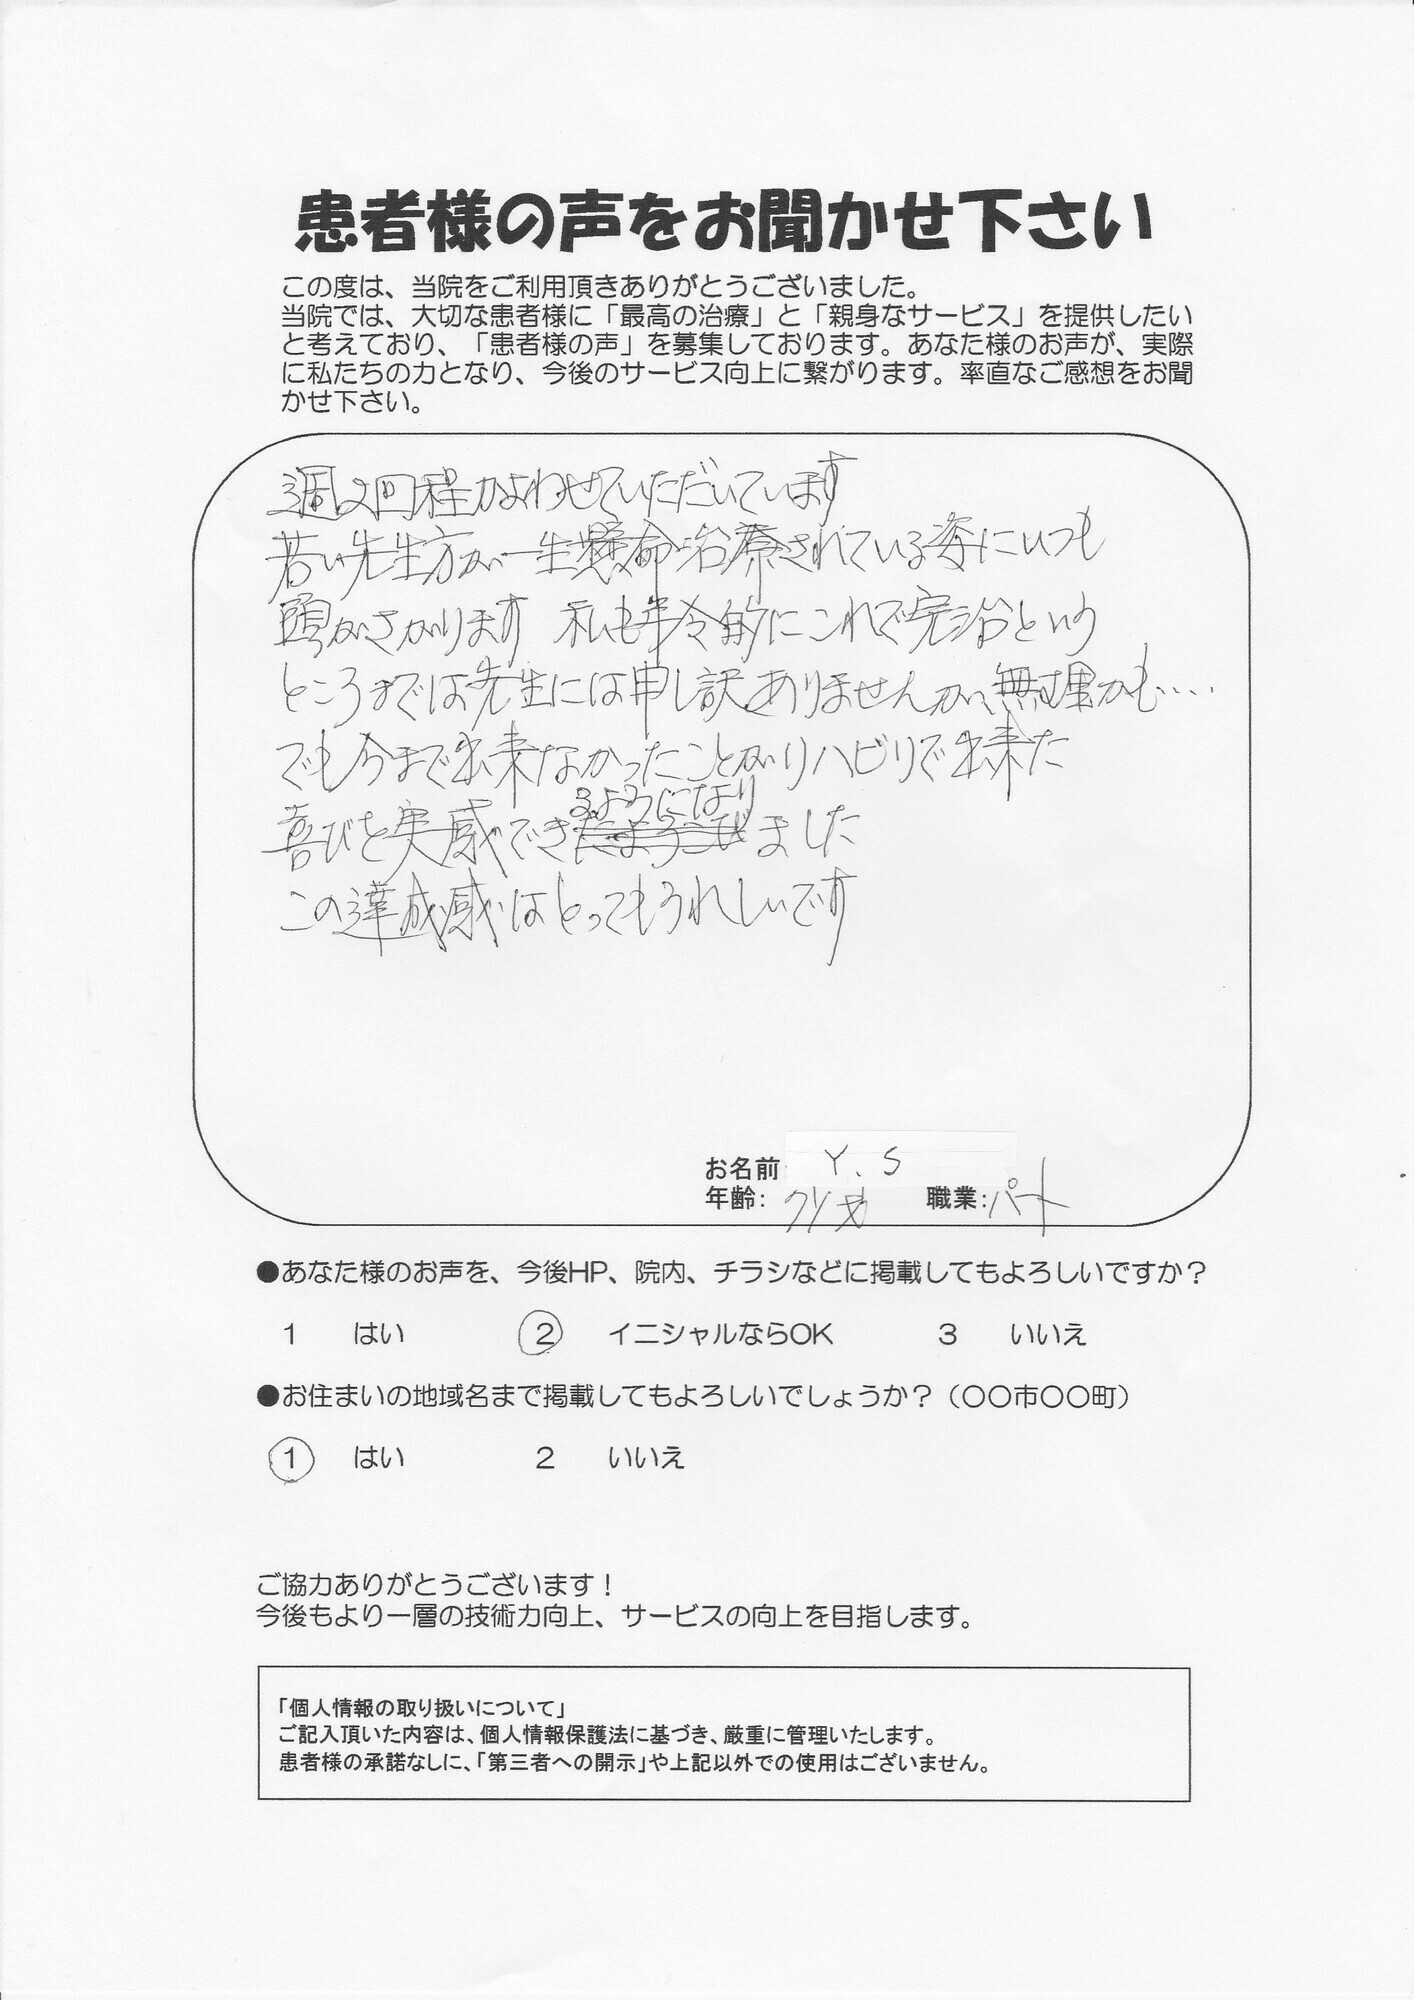 患者様の声をお聞かせ下さい
この度は、当院をご利用頂きありがとうございました。
当院では、大切な患者様に「最高の治療」と「親身なサービス」を提供したい
と考えており、「患者様の声」を募集しております。あなた様のお声が、実際
に私たちの力となり、今後のサービス向上に繋がります。率直なご感想をお聞
かせ下さい。
週2回程かよわせていただいています
若い先生方が一生懸命治療されている姿にいつも
頭がさがります 私も年令的にこれで完治という
ところまでは先生には申し訳ありませんが、無理かも‥‥
でも今まで出来なかったことがリハビリで出来た
喜びを実感できるようになりました
この達成感はとってもうれしいです
お名前 Y.S
年齢: 職業:パート
●あなた様のお声を、今後HP、院内、チラシなどに掲載してもよろしいですか？
1 はい 2 イニシャルならOK 3 いいえ
●お住まいの地域名まで掲載してもよろしいでしょうか？（〇〇市〇〇町）
1 はい 2 いいえ
ご協力ありがとうございます！
今後もより一層の技術力向上、サービスの向上を目指します。
「個人情報の取り扱いについて」
ご記入頂いた内容は、個人情報保護法に基づき、厳重に管理いたします。
患者様の承諾なしに、「第三者への開示」や上記以外での使用はございません。